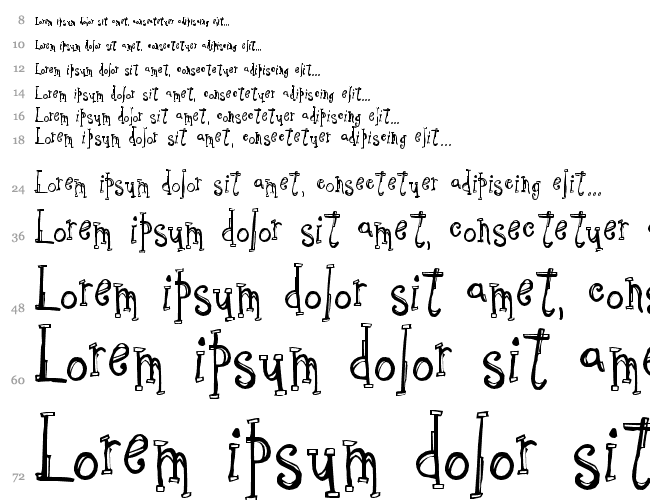 8 Lorem ipsum dolor sit amet, consectetuer adipiscing elit...
10 Lorem ipsum dolor sit amet, consectetuer adipiscing elit...
12 Lorem ipsum dolor sit amet, consectetuer adipiscing elit...
14 Lorem ipsum dolor sit amet, consectetuer adipiscing elit...
16 Lorem ipsum dolor sit amet, consectetuer adipiscing elit...
18 Lorem ipsum dolor sit amet, consectetuer adipiscing elit...
24 Lorem ipsum dolor sit amet, consectetuer adipiscing elit...
36 Lorem ipsum dolor sit amet, consectetuer
48 Lorem ipsum dolor sit amet, cons
60 Lorem ipsum dolor sit ame
72 Lorem ipsum dolor sit